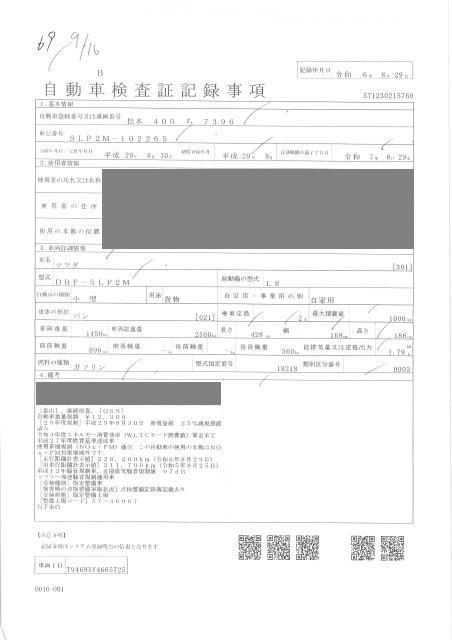 69 9/16
B
自動車検査証記録事項
記録年月日 令和 6年 8月 29日
571230215760
1.基本情報
自動車登録番号又は車両番号
松本 400 ち 7396
車台番号
SLP2M-102265
平成 29年 8月 30日
平成 29年 8月
自動車検査証の有効期間の満了する日
令和 7年 8月 29日
2.使用者情報
使用者の氏名又は名称
使用者の住所
使用の本拠の位置
3.車両詳細情報
車名
マツダ [301]
型式
DBF-SLP2M
原動機の型式
L8
自動車の種別 小型
用途 貨物
自家用・事業用の別 自家用
車体の形状
バン [021]
乗車定員 2人
最大積載量 1000
車両重量 1450kg
車両総重量 2560kg
長さ 428
幅 169
高さ 186
前前軸重 890
前後軸重 -kg
後前軸重 -kg
後後軸重 560kg
総排気量又は定格出力 1.79
燃料の種類
ガソリン
型式指定番号 13218
類別区分番号 0003
4.備考
[富山], 継続検査, [OSS]
自動車重量税額 ¥12,300
[29年度税制]平成29年8月30日 新規登録 25%減税措置
済み
令和4年度エネルギー消費効率(WLTCモード燃費値)算定未了
平成27年度燃費基準達成車
使用車種規制(NOx・PM)適合, この自動車の使用の本拠はNO
x・PM対策地域外です。
[走行距離計表示値]226,200km(令和6年8月29日)
[旧走行距離計表示値]211,700km(令和5年8月25日)
マフラー加速騒音規制適用車
[受検種別]指定整備車
[受検形態]指定整備工場
[整備工場コード]57-30007
以下余白
【注意事項】
記録事項はシステム登録時点の情報となります
車両ID T9469XF4665725
0016-001